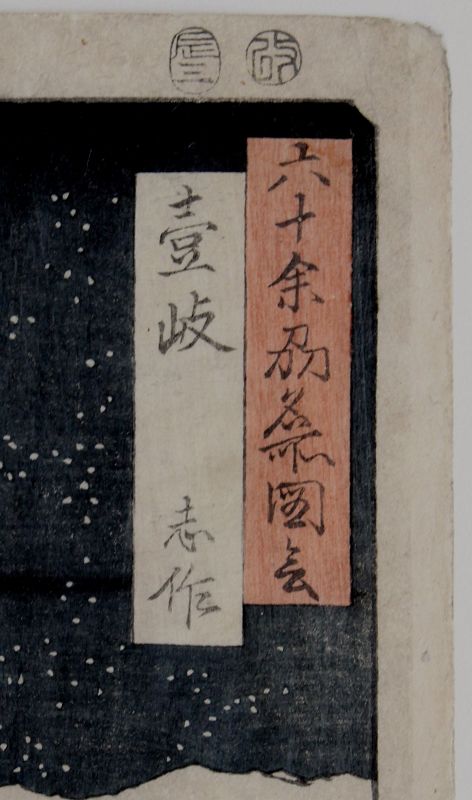 改
辰三
六十余州名所図会
壹岐 志作